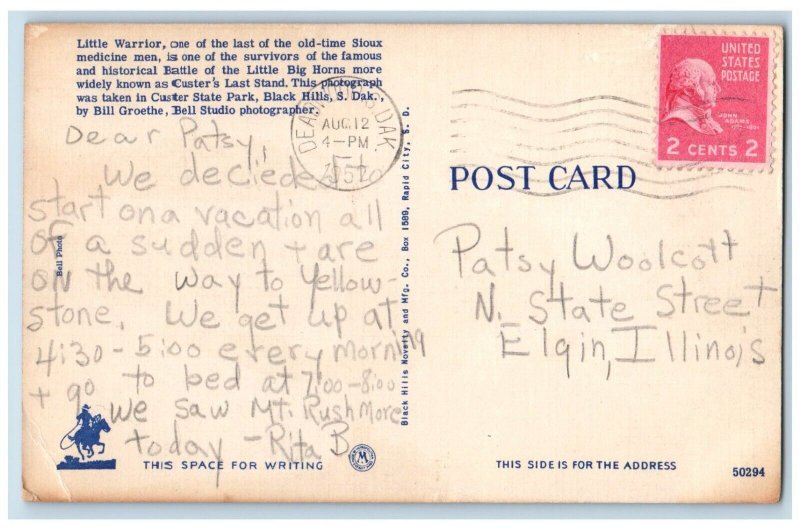 Little Warrior, one of the last of the old-time Sioux
medicine men, is one of the survivors of the famous
and historical Battle of the Little Big Horns more
widely known as Custer's Last Stand. This photograph
was taken in Custer State Park, Black Hills, S. Dak.,
by Bill Groethe, Bell Studio photographer.
Dear Patsy,
We decieded to
start on a vacation all
of a sudden + are
on the way to Yellow-
stone. We get up at
4:30 - 5:00 every morning
+ go to bed at 7:00-8:00
We saw Mt. Rushmore
today - Rita B
THIS SPACE FOR WRITING
Bell Photo
Black Hills Novelty and Mfg. Co., Box 1589, Rapid City, S. D.
AUG 12
4-PM
UNITED
STATES
POSTAGE
JOHN
ADAMS
2 CENTS 2
POST CARD
Patsy Woolcott
N. State Street
Elgin, Illinois
THIS SIDE IS FOR THE ADDRESS
50294